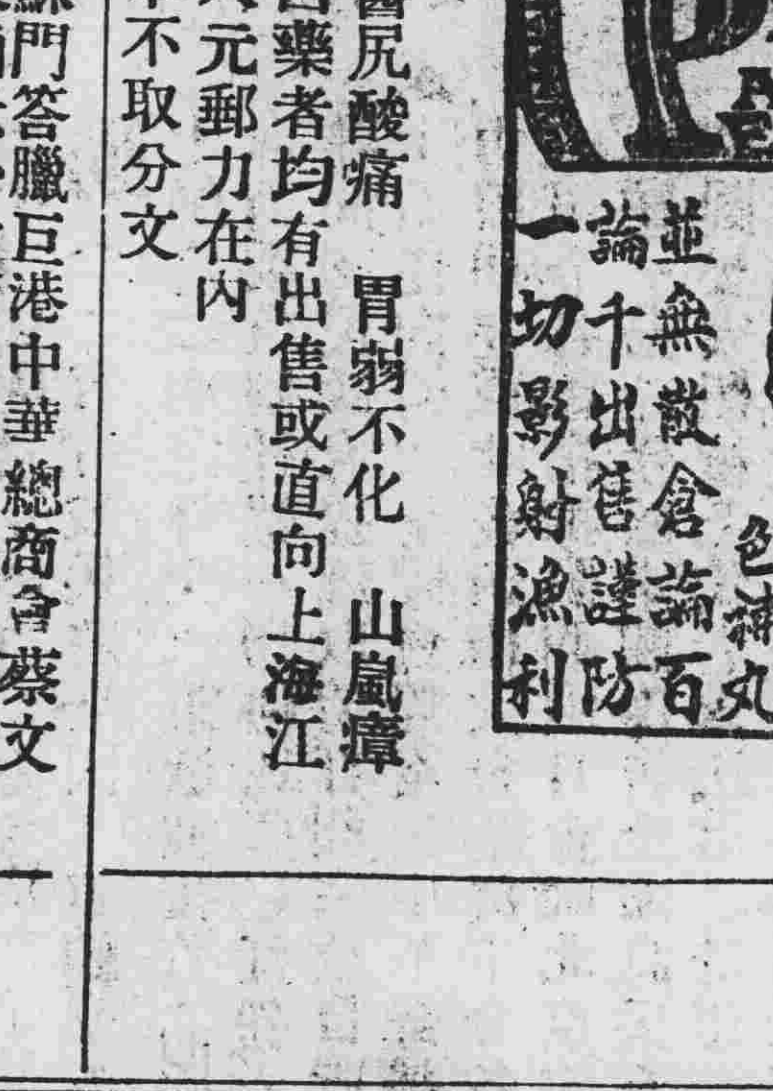 色補丸
並無散倉論百
論千出售謹防
一切影射漁利
尻酸痛　胃弱不化　山嵐瘴
藥者均有出售或直向上海江
元郵力在內
不取分文
門答臘巨港中華總商會蔡文